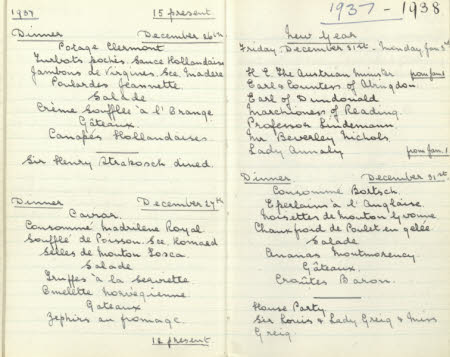 1937 15 present
Dinner December 24th
Potage Clermont
Turbots pochés. Sauce Hollandaise
Jambons de Virginie. Sce. Madère
Poulardes Jeannette.
Salade
Crème Soufflée à l'Orange
Gâteaux
Canapés Hollandaises
Sir Henry Strakosch dined.
Dinner December 27th
Caviar.
Consommé madrilène Royal
Soufflé de Poisson. Sce. Homard
Selles de mouton Tosca.
Salade
Truffes à la Serviette
Omelette norvégienne.
Gateaux
Zephirs au fromage.
18 present
1937 - 1938
New Year
Friday. December 31st. Monday Jan 3rd
H. E. The Austrian Minister from Jan 1
Earl & Countess of Abingdon.
Earl of Dundonald
Marchioness of Reading.
Professor Lindemann.
Mr Beverley Nichols.
Lady Annaly from Jan. 1
Dinner December 31st.
Consommé Bortsch.
Eperlains à l'Anglaise.
Noisettes de mouton Yvonne
Chauxfroid de Poulet en gelée
Salade
Ananas Montmorency.
Gâteaux.
Croûtes Baron.
House Party
Sir Louis & Lady Greig & Miss
Greig.